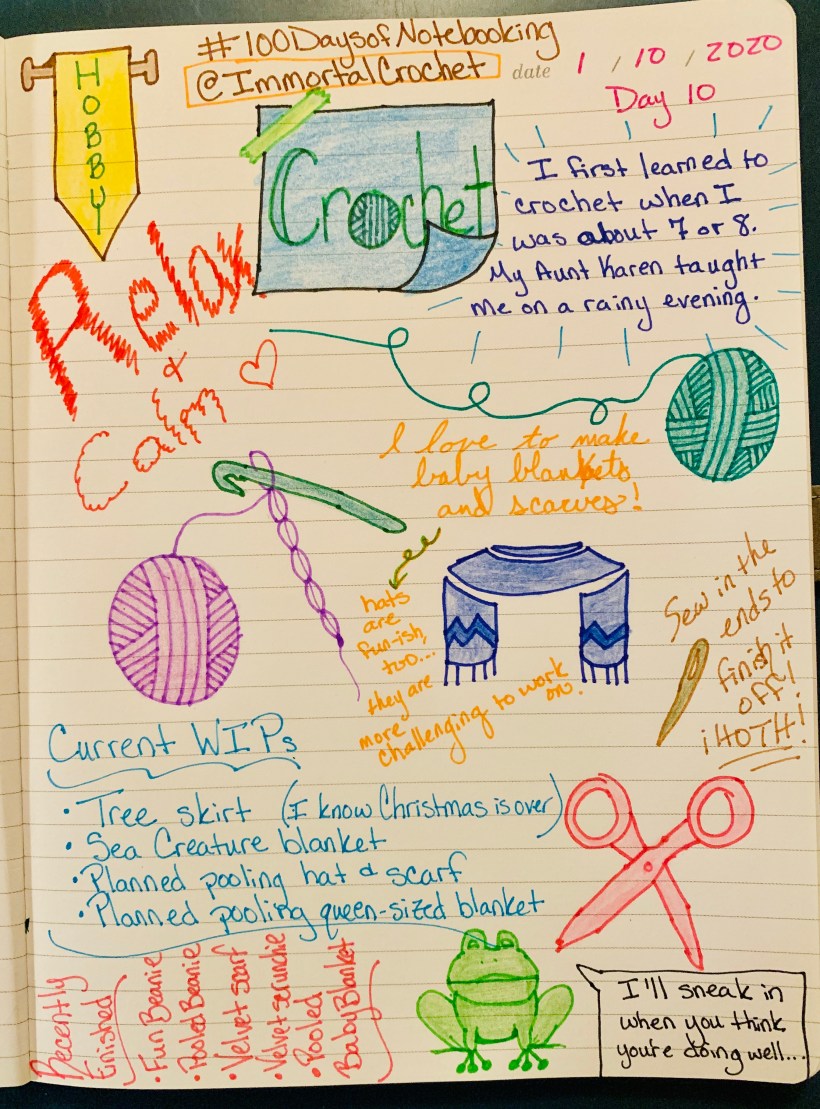 #100DaysofNotebooking
@ImmortalCrochet
date 1 / 10 / 2020
Day 10
HOBBY
Crochet
I first learned to
crochet when I
was about 7 or 8.
My Aunt Karen taught
me on a rainy evening.
Relax
&
Calm
I love to make
baby blankets
and scarves!
hats
are
fun-ish,
too...
they are
more
challenging to work
on.
Sew in the
ends to
finish it
off!
¡HOTH!
Current WIPs
• Tree skirt (I know Christmas is over)
• Sea Creature blanket
• Planned pooling hat & scarf
• Planned pooling queen-sized blanket
Recently
Finished
• Fun Beanie
• Pooled Beanie
• Velvet scarf
• Velvet scrunchie
• Pooled
Baby Blanket
I'll sneak in
when you think
you're doing well...